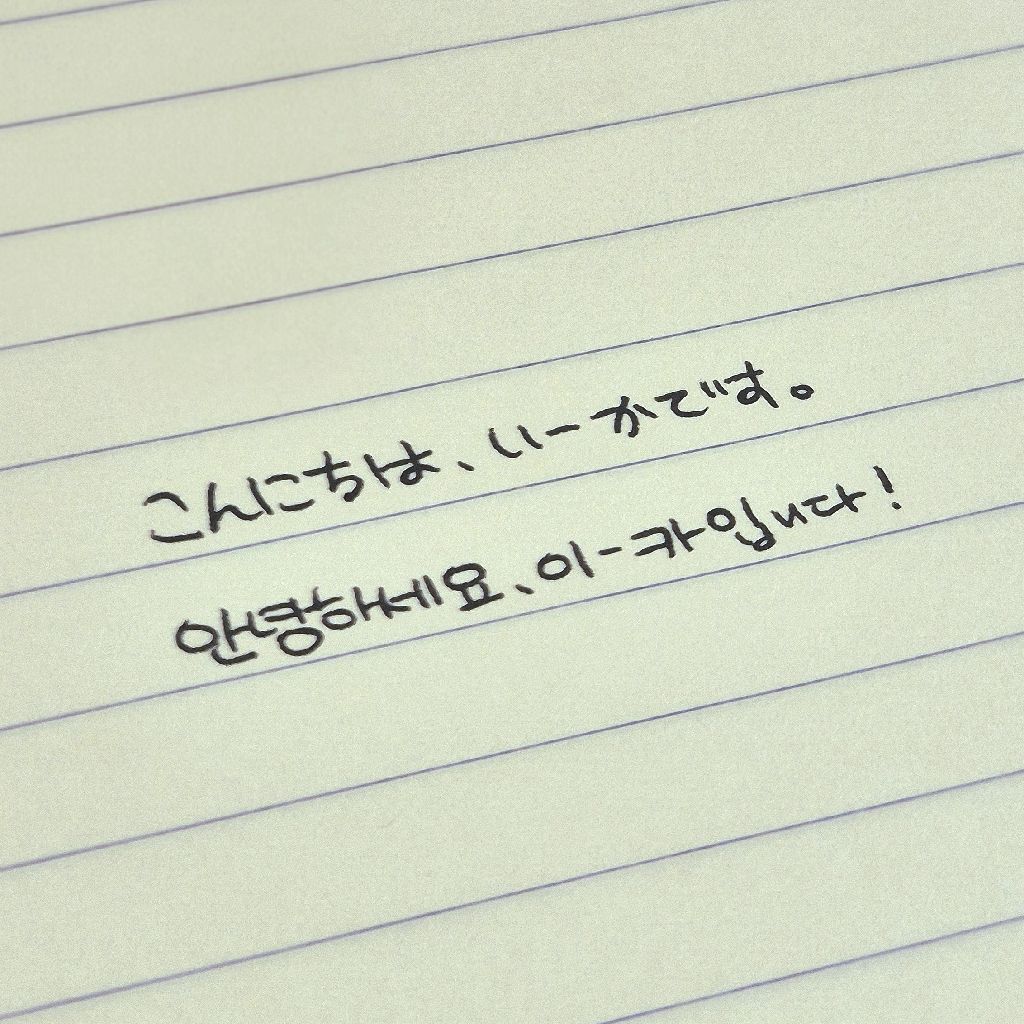 こんにちは、いーかです。
안녕하세요、이-카입니다!